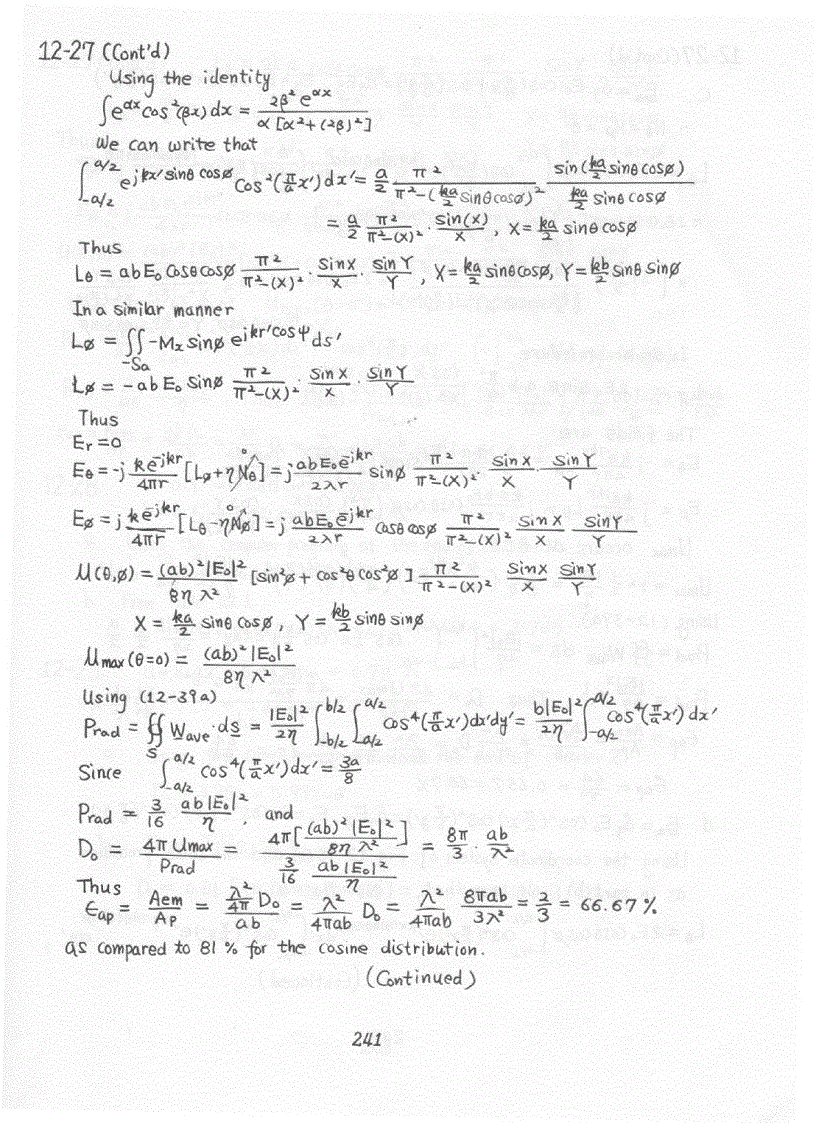 12-27 (Cont'd)
Using the identity
∫e^{αx} cos²(βx) dx = 2β² e^{αx} / α[α² + (2β)²]
We can write that
∫_{-a/2}^{a/2} e^{jkx' sinθ cosø} cos²(π/a x') dx' = a/2 π²/(π² - (ka/2 sinθ cosø)²) sin(ka/2 sinθ cosø)/(ka/2 sinθ cosø)
= a/2 π²/(π² - (X)²) · sin(X)/X , X = ka/2 sinθ cosø
Thus
Lθ = abE₀ cosθ cosø π²/(π² - (X)²) · sin X/X · sin Y/Y , X = ka/2 sinθ cosø, Y = kb/2 sinθ sinø
In a similar manner
Lø = ∬_{Sa} -Mx sinø e^{jkr' cosψ} ds'
Lø = -abE₀ sinø π²/(π² - (X)²) · sin X/X · sin Y/Y
Thus
Er = 0
Eθ = -j ke^{-jkr}/4πr [Lø + ηNθ⁰] = j abE₀e^{-jkr}/2λr sinø π²/(π² - (X)²) · sin X/X · sin Y/Y
Eø = j ke^{-jkr}/4πr [Lθ - ηNø⁰] = j abE₀e^{-jkr}/2λr cosθ cosø π²/(π² - (X)²) sin X/X sin Y/Y
U(θ,ø) = (ab)²|E₀|²/8ηλ² [sin²ø + cos²θ cos²ø] π²/(π² - (X)²) sin X/X sin Y/Y
X = ka/2 sinθ cosø , Y = kb/2 sinθ sinø
Umax(θ=0) = (ab)²|E₀|²/8ηλ²
Using (12-39a)
Prad = ∯_S Wave · ds = |E₀|²/2η ∫_{-b/2}^{b/2} ∫_{-a/2}^{a/2} cos⁴(π/a x') dx'dy' = b|E₀|²/2η ∫_{-a/2}^{a/2} cos⁴(π/a x') dx'
Since ∫_{-a/2}^{a/2} cos⁴(π/a x') dx' = 3a/8
Prad = 3/16 ab|E₀|²/η , and
D₀ = 4πUmax/Prad = 4π[(ab)²|E₀|²/8ηλ²] / (3/16 ab|E₀|²/η) = 8π/3 · ab/λ²
Thus
ϵap = Aem/Ap = (λ²/4π D₀)/ab = λ²/4πab D₀ = λ²/4πab 8πab/3λ² = 2/3 = 66.67 %
as compared to 81 % for the cosine distribution.
(Continued)
241